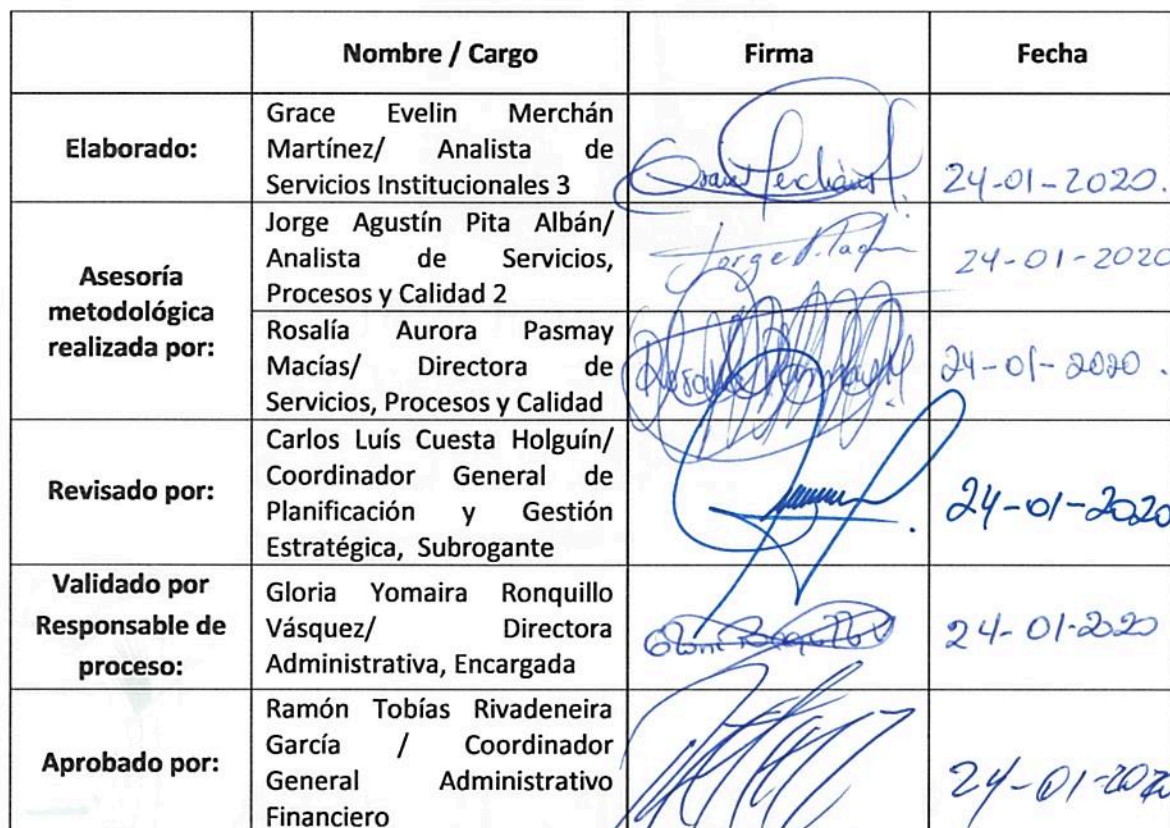 Nombre / Cargo Firma Fecha
Elaborado:
Grace Evelin Merchán
Martínez/ Analista de
Servicios Institucionales 3
24-01-2020.
Asesoría
metodológica
realizada por:
Jorge Agustín Pita Albán/
Analista de Servicios,
Procesos y Calidad 2
Jorge
24-01-2020
Rosalía Aurora Pasmay
Macías/ Directora de
Servicios, Procesos y Calidad
24-01-2020.
Revisado por:
Carlos Luís Cuesta Holguín/
Coordinador General de
Planificación y Gestión
Estratégica, Subrogante
24-01-2020
Validado por
Responsable de
proceso:
Gloria Yomaira Ronquillo
Vásquez/ Directora
Administrativa, Encargada
24-01-2020
Aprobado por:
Ramón Tobías Rivadeneira
García / Coordinador
General Administrativo
Financiero
24-01-2020